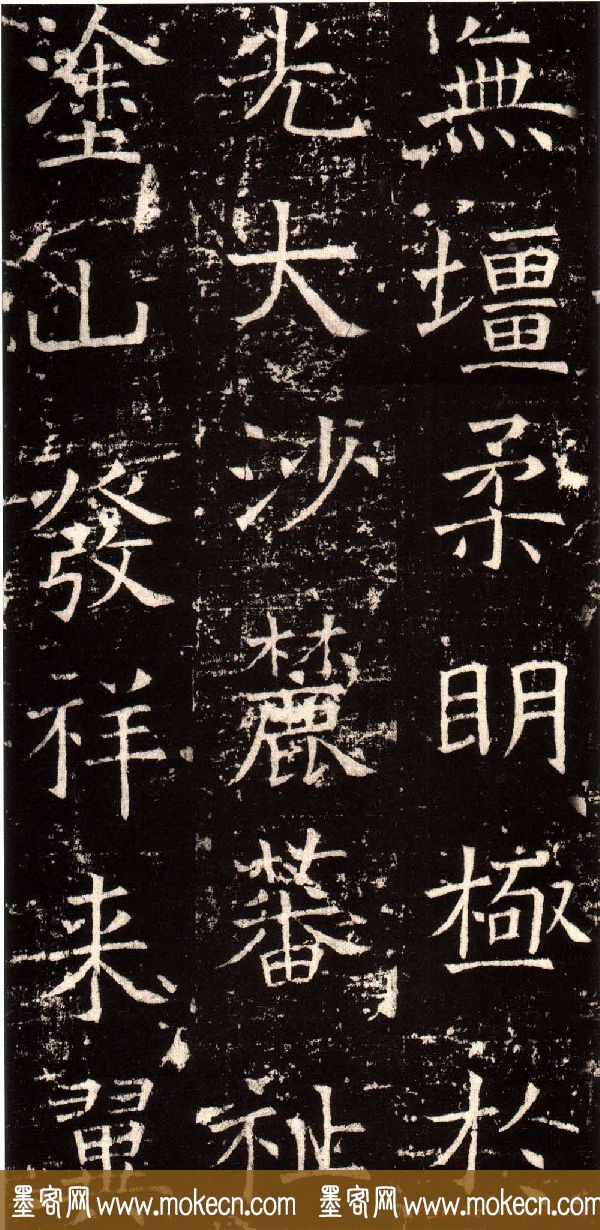 無壃柔眀極於
光大沙麓蕃祉
塗山發祥来翼
墨客网 www.mokecn.com 墨客网 www.mokecn.com